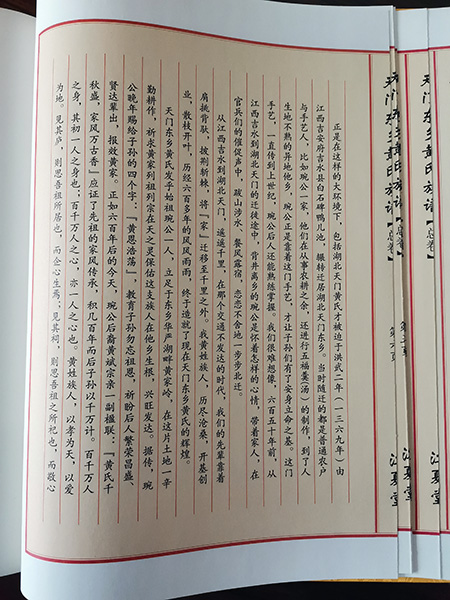 正是在这样的大环境下，包括湖北天门黄氏才被迫于洪武二年（一三六九年）由
江西吉安府吉水县白石碑鸭儿池，辗转迁居湖北天门东乡。当时随迁的都是普通农户
与手艺人，比如琬公一家，他们在从事农耕之余，还进行五福羹（汤）的制作，到了人
生地不熟的异地他乡，琬公正是靠着这门手艺，才让子孙们有了安身立命之基。这门
手艺，一直传到上世纪，琬公后人还能熟练掌握。我们很难想像，六百五十年前，从
江西吉水到湖北天门的迁徙途中，背井离乡的琬公是怀着怎样的心情，带着家人，在
官兵们的催促声中，跋山涉水，餐风露宿，恋恋不舍地一步步北迁。
从江西吉水到湖北天门，遥遥千里，在那个交通不发达的时代，我们的先辈靠着
肩挑背驮，披荆斩棘，将『家』迁移至千里之外。我黄姓族人，历尽沧桑，开基创
业，散枝开叶，历经六百多年的风风雨雨，终于造就了现在天门东乡黄氏的辉煌。
天门东乡黄氏发乎始祖琬公一人，立足于东乡华严湖畔黄家岭，在这片土地一辛
勤耕作，祈求黄家列祖列宗在天之灵保佑这支族人在他乡生根，兴旺发达。据传，琬
公晚年赐给子孙的四个字：『黄恩浩荡』，教育子孙勿忘祖恩，祈盼后人繁荣昌盛、
贤达辈出，报效黄家。正如六百年后的今天，琬公后裔黄斌宗亲一副楹联：『黄氏千
秋盛，家风万古香』应证了先祖的家风传承，积几百年而后子孙以千万计。百千万人
之身，其初一人之身也；百千万人之心，亦一人之心也。黄姓族人，以孝为天，以爱
为地。见其庐，则思吾祖所居也，而企心生焉；见其祠，则思吾祖之所祀也，而敬心
天门东乡黄氏族谱【总卷】
第六页
江夏堂
天门东乡黄氏族谱【总卷】
江夏堂
天门东乡黄氏族谱【总卷】
江夏堂